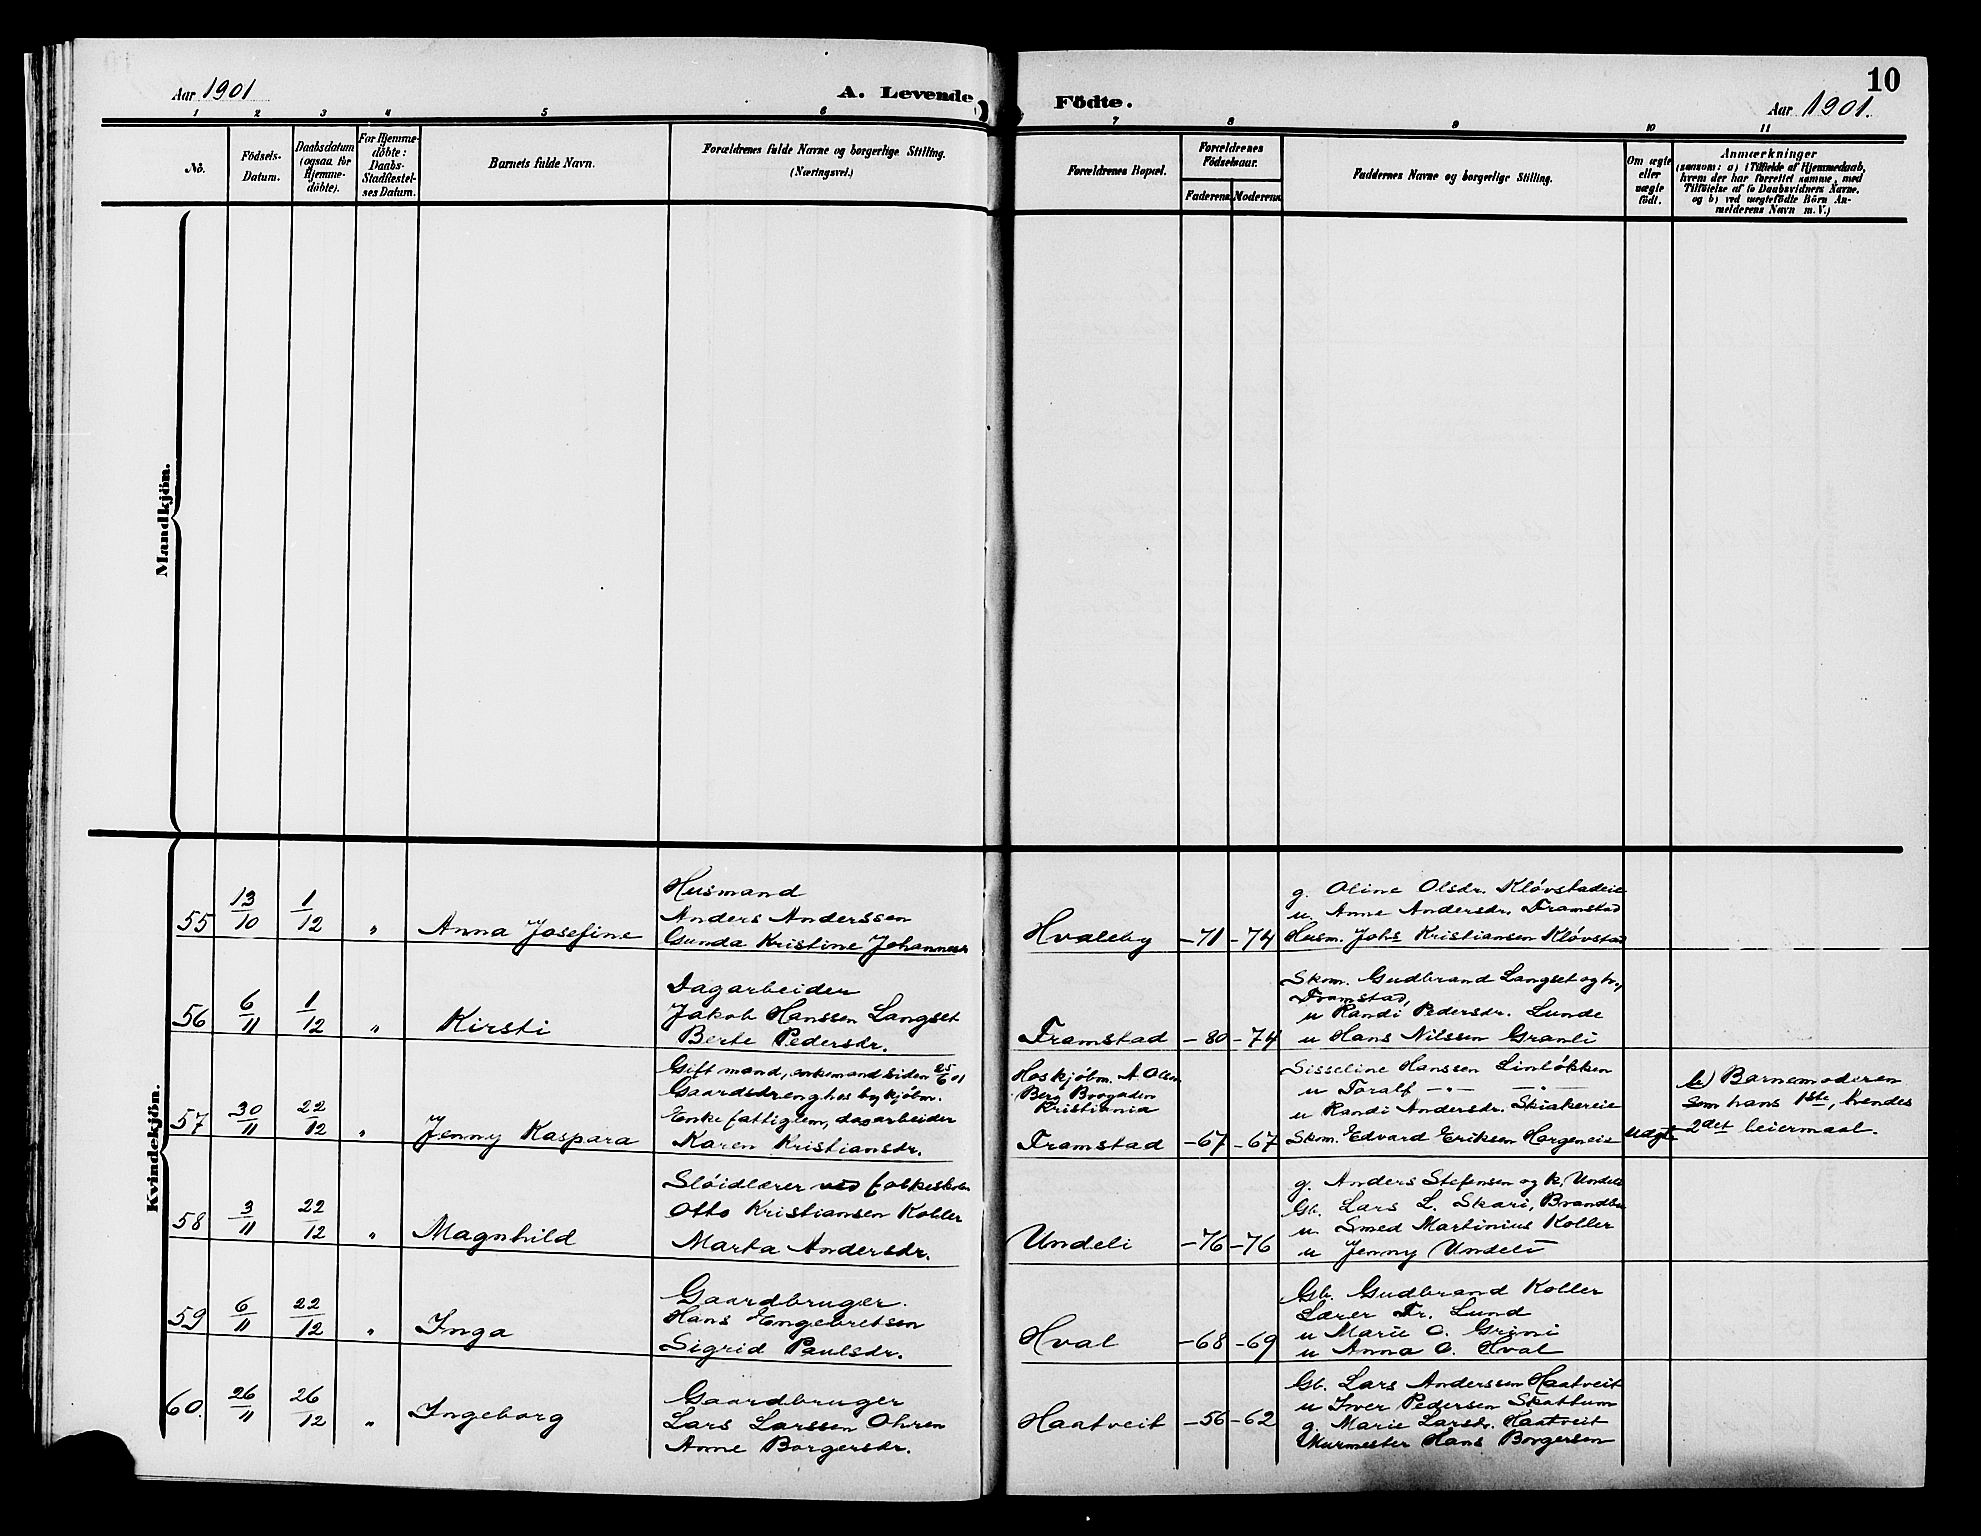 10
Aar 1901
A. Levende
Födte.
Aar 1901.
1 2 3 4 5 6 7 8 9 10 11
No.
Födsels-
Datum.
Daabsdatum
(ogsaa for
Hjemme-
döbte).
For Hjemme-
döbte:
Daabs-
Stadfæstel-
ses Datum.
Barnets fulde Navn.
Forældrenes fulde Navne og borgerlige Stilling.
(Næringsvei.)
Forældrenes Bopæl.
Forældrenes
Födselsaar.
Faderens
Moderens
Faddernes Navne og borgerlige Stilling.
Om ægte
eller
uægte
födt.
Anmærkninger
(saasom: a) i Tilfælde af Hjemmedaab,
hvem der har forrettet samme, med
Tilföielse af to Daabsvidners Navne.
og b) ved uægtefödte Börn An-
melderens Navn m. V.)
Mandkjön.
Kvindekjön.
55
13/10
1/12
"
Anna Josefine
Husmand
Anders Anderssen
Gunda Kristine Johannesdr
Hvaleby
-71
-74
g. Oline Olsdr. Kløvstadeie
u. Anne Andersdr. Framstad
Husm. Johs Kristiansen Kløvstad
56
6/11
1/12
"
Kirsti
Dagarbeider
Jakob Hanssen Langset
Berte Pedersdr.
Framstad
-80
-74
Skom. Gudbrand Langset og hu,
Framstad,
u Randi Pedersdr. Lunde
u Hans Nilssen Granli
57
30/11
22/12
"
Jenny Kaspara
Gift mand, enkemand siden 25/6 01
Gaardsdreng hos kjøbm.
Enke fattiglem, dagarbeider
Karen Kristiansdr.
Hos kjøbm. A. Olsen
Berg Brogaden
Kristiania
Framstad
-67
-67
Sisseline Hanssen Linløkken
u Toralf -"- -"-
u Randi Andersdr. Skiakereie
Skom. Edvard Eriksen Horgeneie
Uægte
b) Barnemoderen
som hans 1ste, hendes
2det leiermaal.
58
3/11
22/12
"
Magnhild
Sløidlærer ved folkeskolen
Otto Kristiansen Koller
Marta Andersdr.
Undeli
-76
-76
g. Anders Stefensen og k, Undeli
Gb. Lars L. Skari, Brandbu
u. Smed Martinius Koller
u Jenny Undeli
59
6/11
22/12
"
Inga
Gaardbruger.
Hans Engebretsen
Sigrid Paulsdr.
Hval
-68
-69
Gb. Gudbrand Koller
Lærer Fr. Lund
u Marie O. Grini
u Anna O. Hval
60.
26/11
26/12
"
Ingeborg
Gaardbruger
Lars Larssen Ohren
Anne Borgersdr.
Haatveit
-56
-62
Gb. Lars Anderssen Haatveit
u Iver Pedersen Skattum
g. Marie Larsdr. Haatveit
Murmester Hans Borgersen